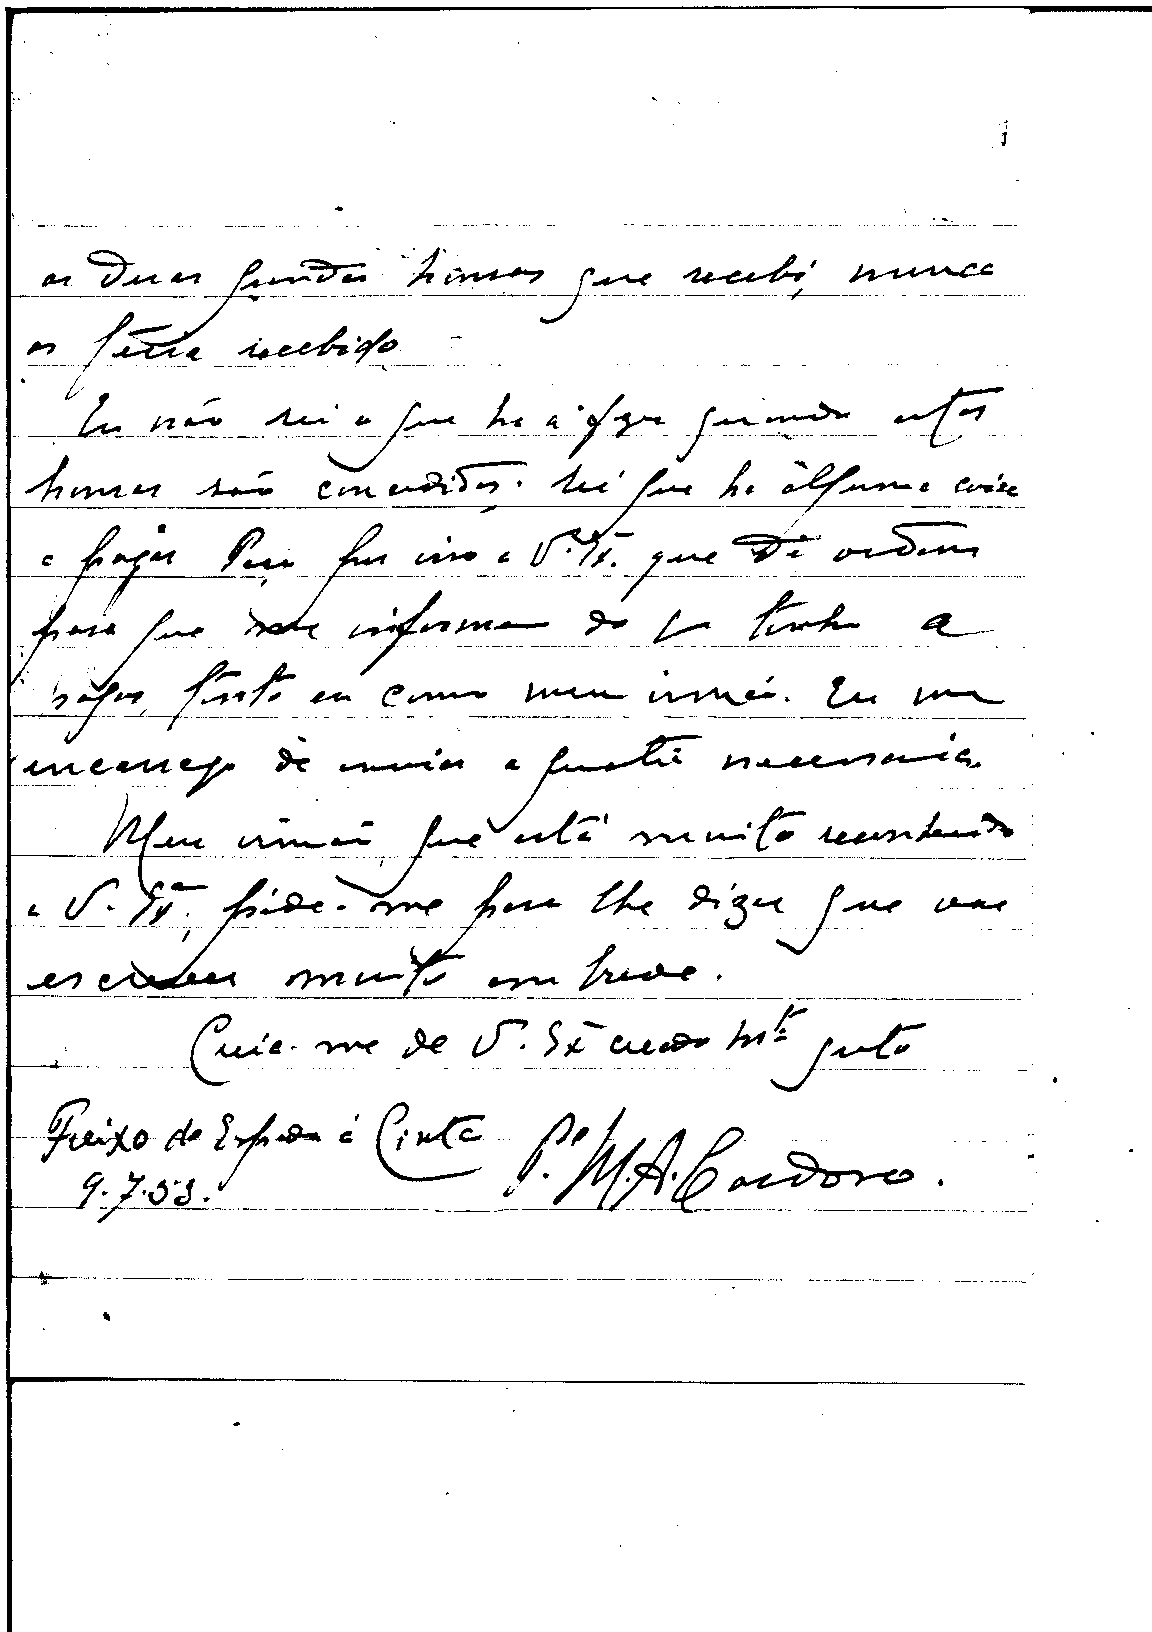 as duas grandes honras que recebi, nunca
as teria recebido
Eu não sei o que ha a fazer quando estas
honras são concedidas. Sei que ha alguma coisa
a pagar Peço por isso a V. Ex. que dê ordem
para que me informem do q tenho a
pagar, tanto eu como meu irmão. Eu me
encarrego de enviar a quantia necessaria.
Meu irmão que está muito reconhecido
a V. Exª, pede-me para lhe dizer que vae
escrever muito em breve.
Creia-me de V. Ex creado mtº grato
Freixo de Espada á Cinta
Pe M. A. Cardoso.
9.7.53.